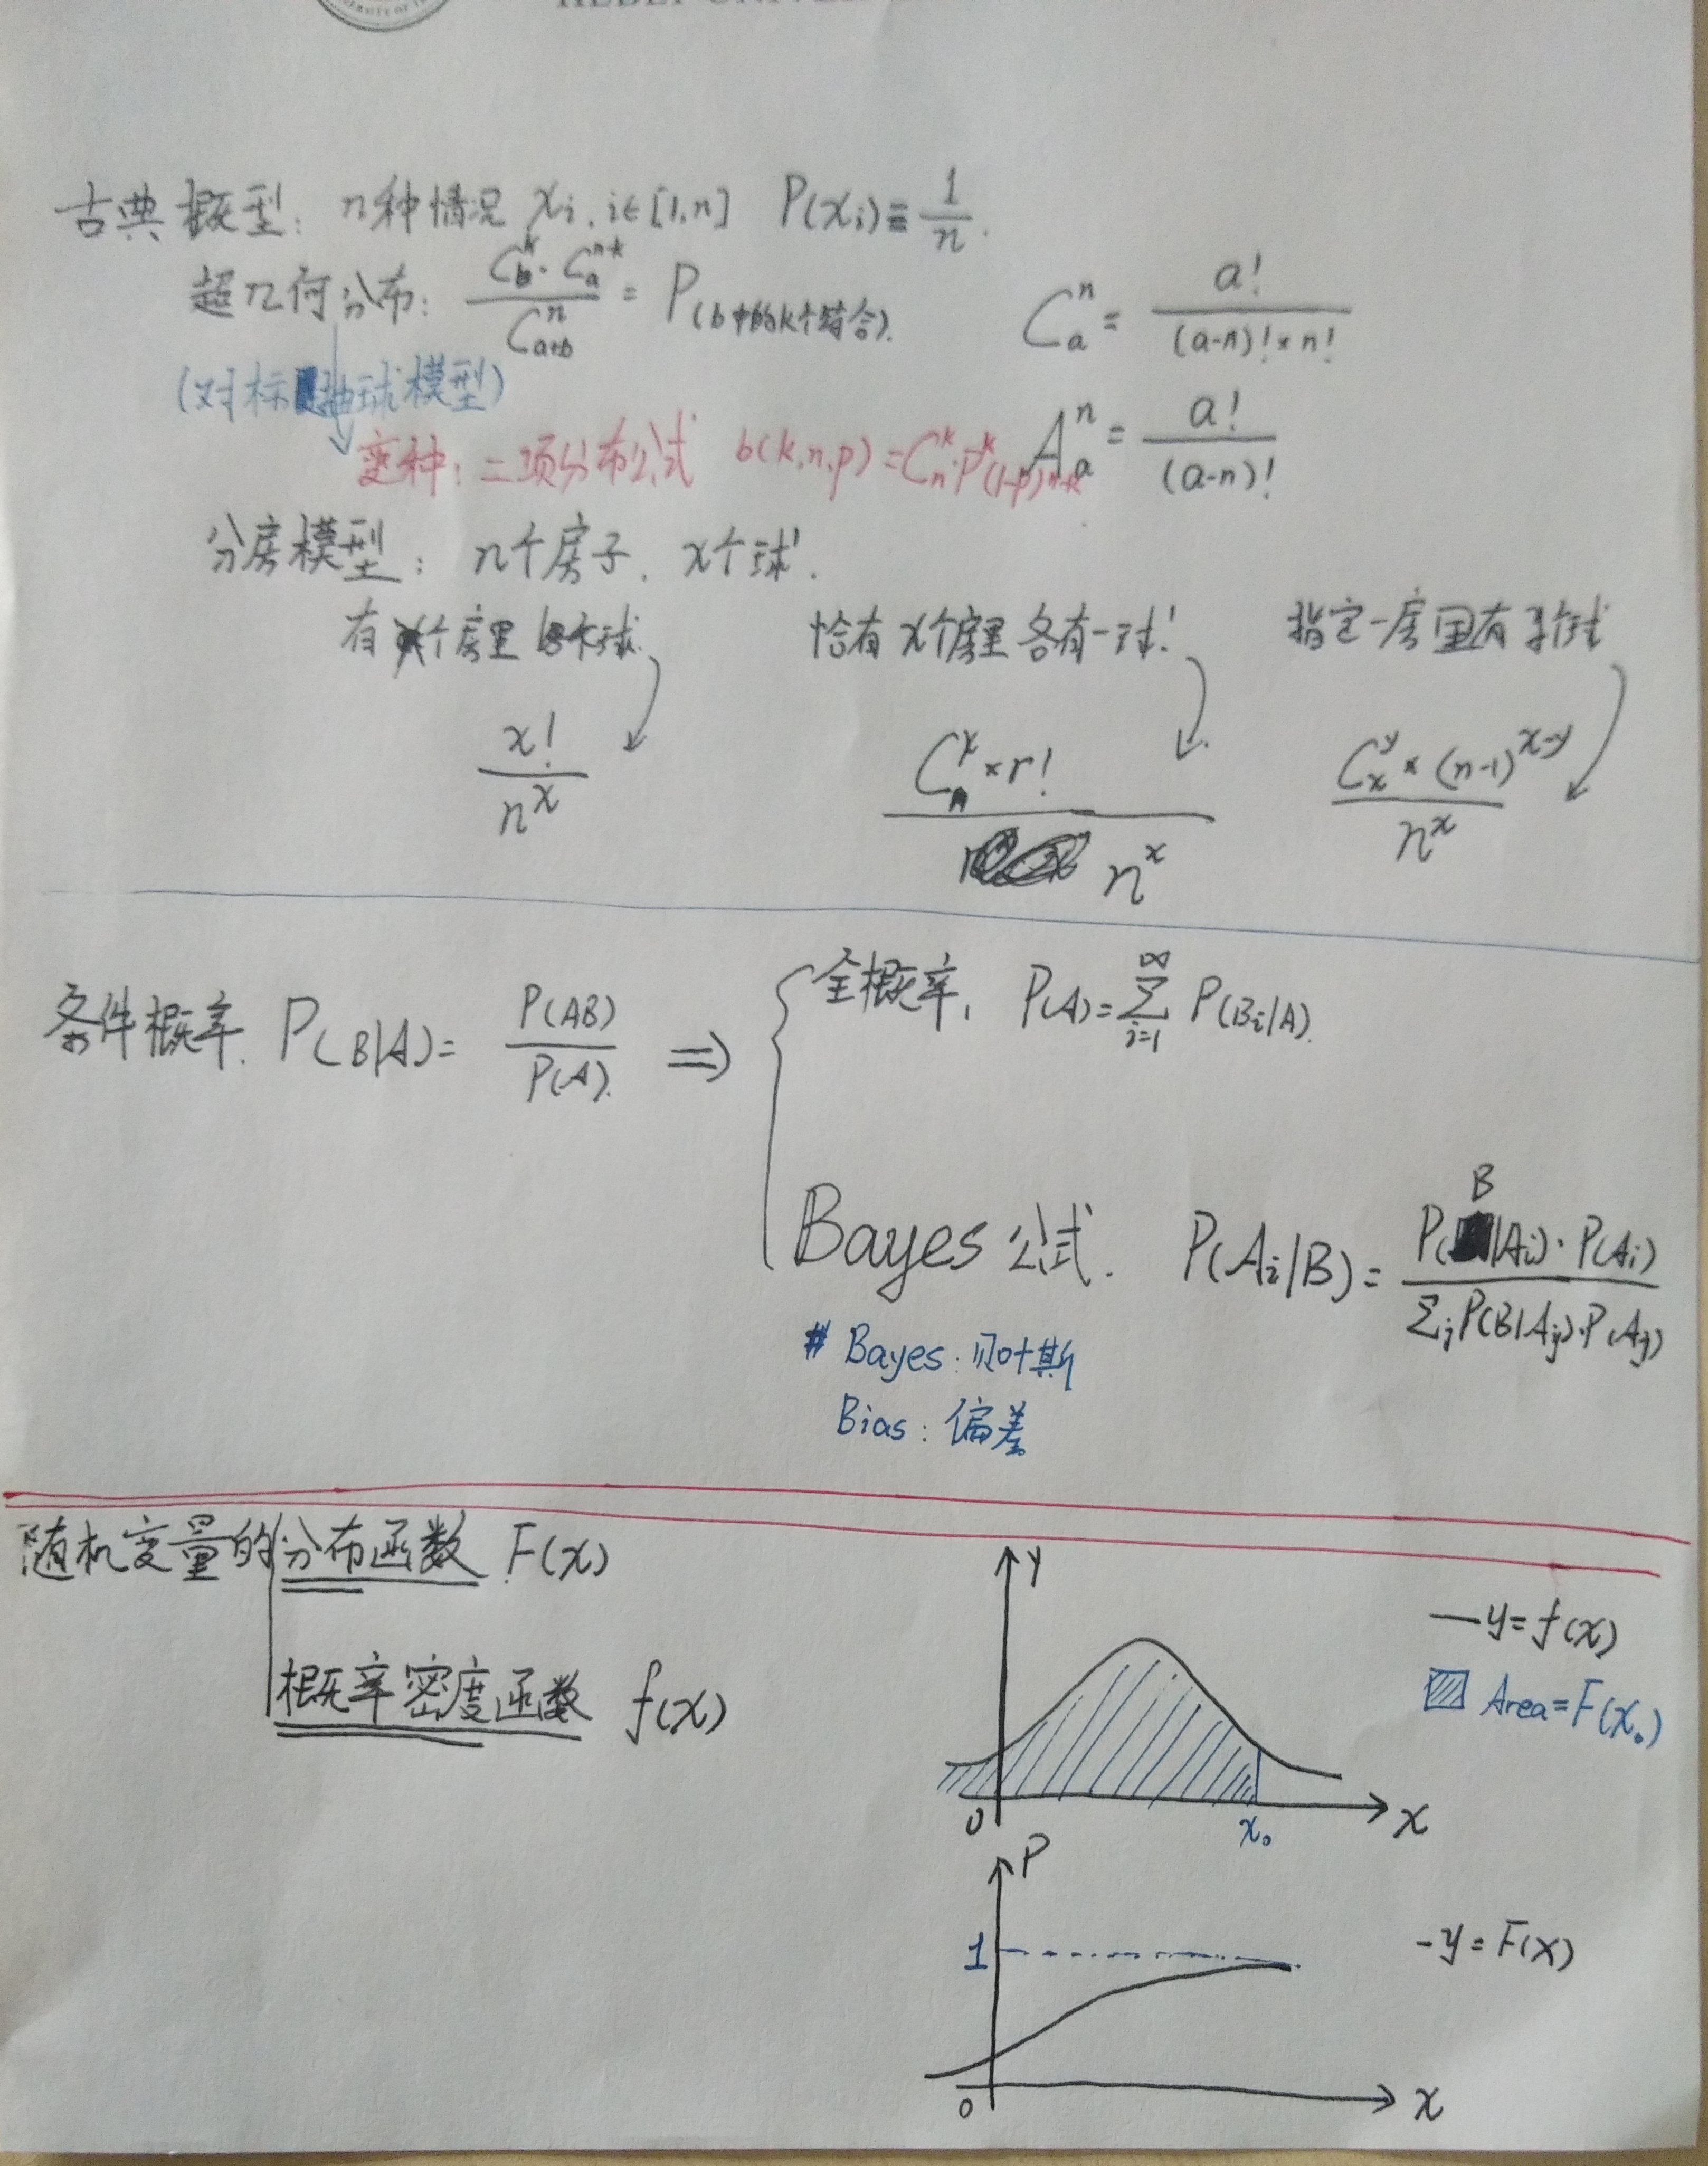 古典概型: n种情况 xi, i∈[1,n] P(xi)≡1/n.
超几何分布: (C_b^k · C_a^{n-k})/C_{a+b}^n = P(b中的k个结合). C_a^n = a!/((a-n)!×n!)
(对标抽球模型)
变种: 二项分布公式 b(k,n,p)=C_n^k·p^k(1-p)^{n-k} A_a^n = a!/(a-n)!
分房模型: n个房子, x个球.
有x个房里 恰有x个房里各有一球. 指定一房里有y个球
x!/n^x (C_n^x × r!)/n^x (C_x^y × (n-1)^{x-y})/n^x
条件概率. P(B|A)= P(AB)/P(A) ⇒
全概率, P(A)=∑_{i=1}^∞ P(Bi|A).
Bayes公式. P(Ai|B)= (P(B|Ai)·P(Ai))/(∑j P(B|Aj)·P(Aj))
# Bayes: 贝叶斯
Bias: 偏差
随机变量的分布函数 F(x)
概率密度函数 f(x)
y
—y=f(x)
Area=F(x₀)
0 x₀ x
P
1 -y=F(x)
0 x